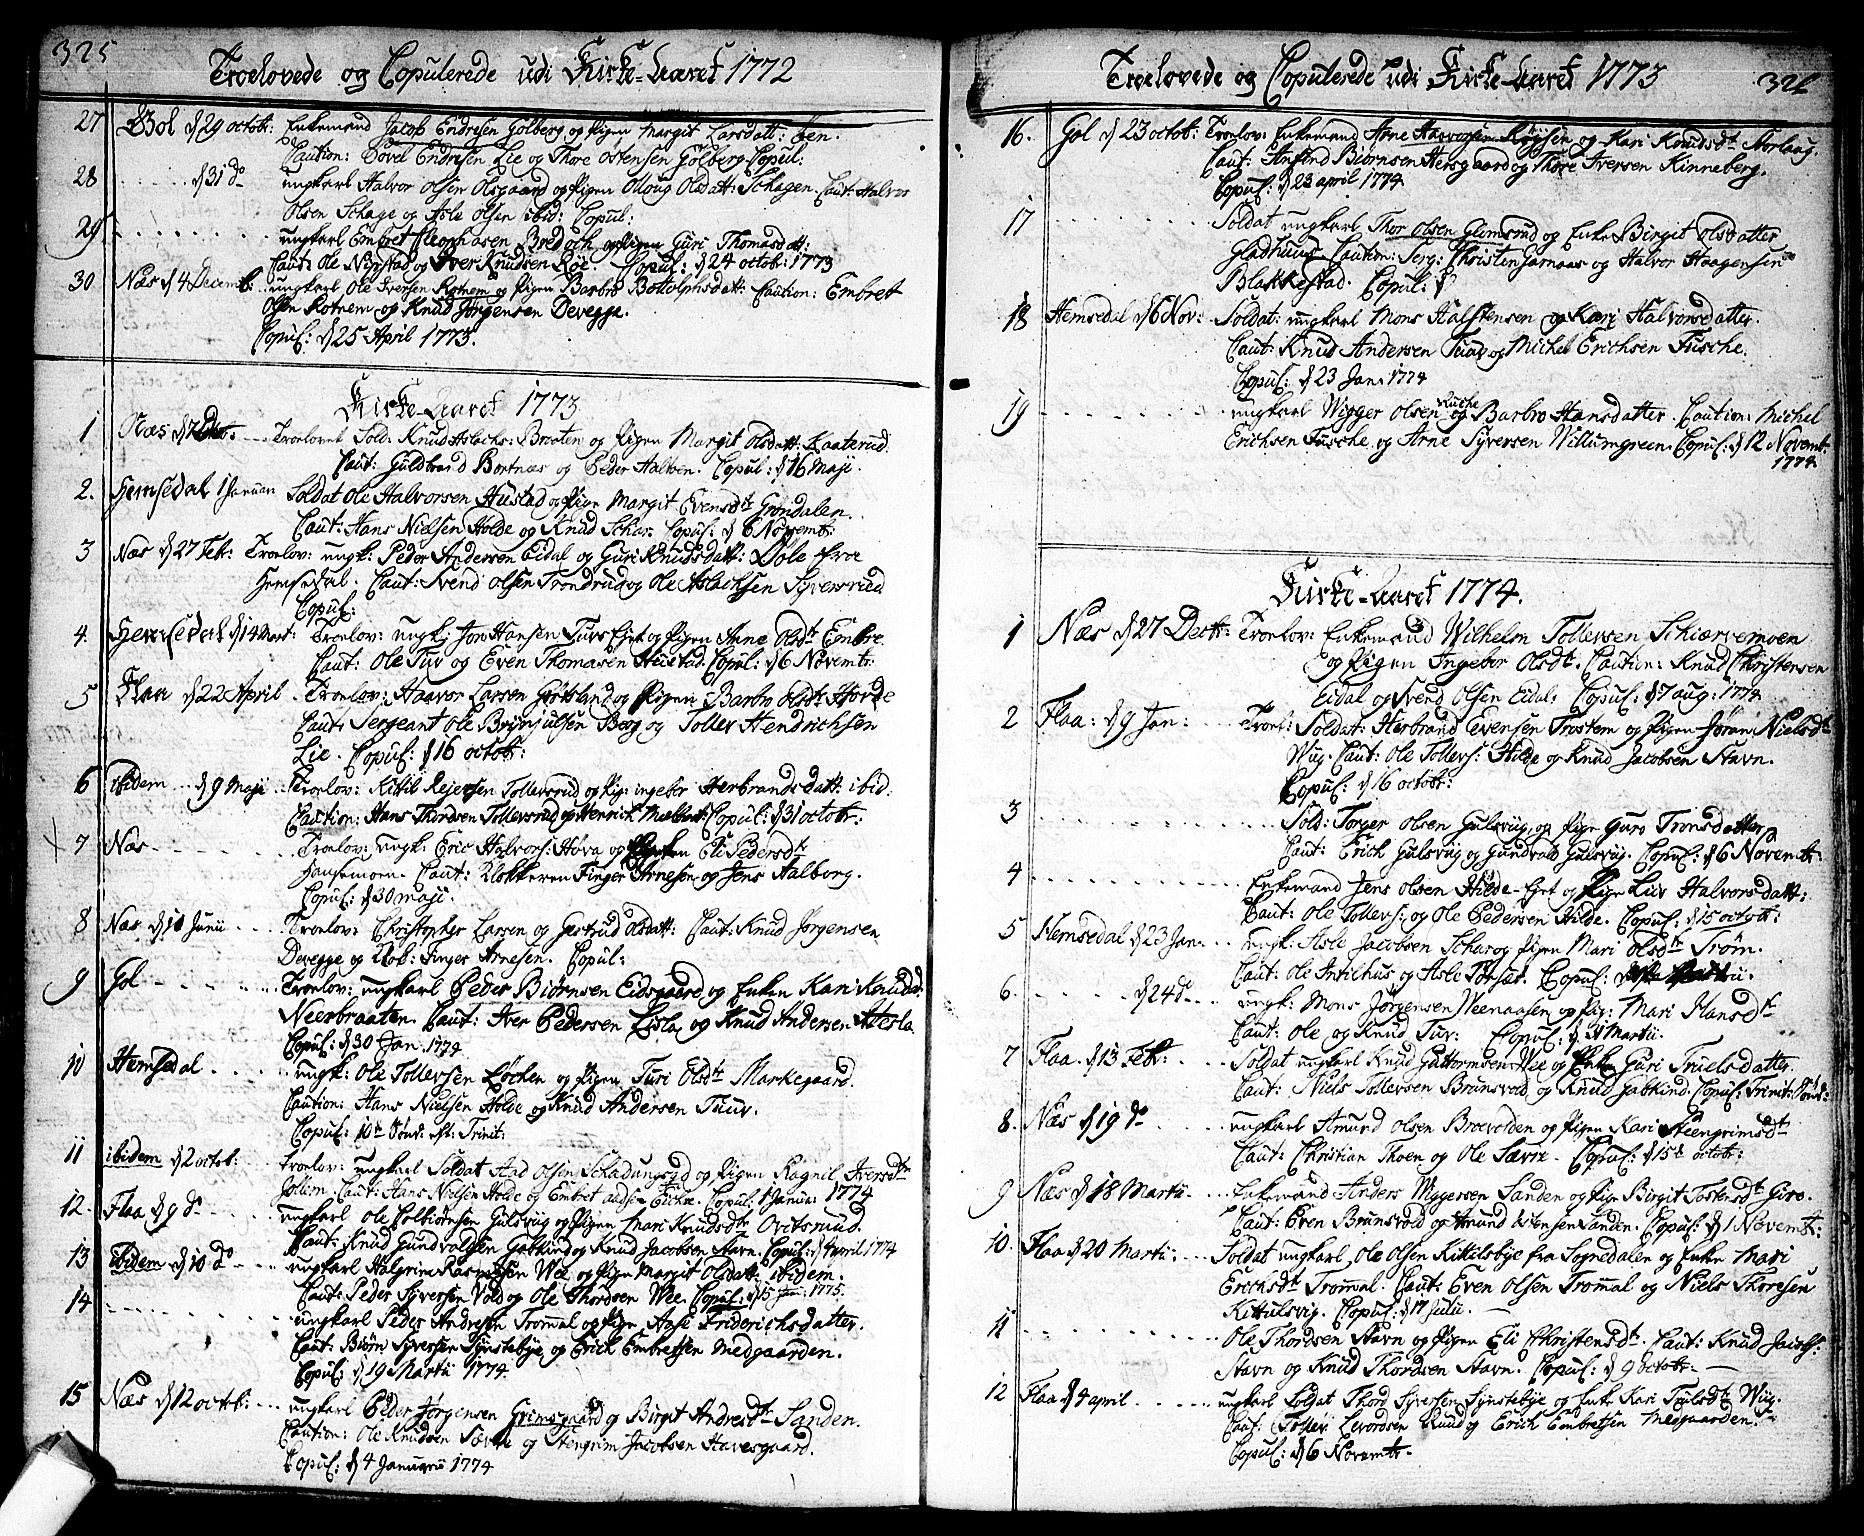 325
Troelovede og Copulerede udi Kirke-Aaret 1772
27 Gol d 29 octobr: Enkemand Jacob Endresen Golberg og Pigen Margit Larsdatt: ben.
Caution: Bovel Endresen Lie og Thore Ostensen Golberg. Copul:
28 d 31 do ungkarl Halvor Olsen Olsgaard og Pigen Olloug Olsdatt: Schagen. Caut: Halvor
Olsen Schage og Asle Olsen ibid: Copul:
29 ungkarl Embret Cleophasen Bredoch og Pigen Guri Thomasdatt:
Caut: Ole Nyestad og Iver Knudsen Röe. Copul: d 24 octobr: 1773
30 Næs d 4 Decemb: ungkarl Ole Iversen Rotnem og Pigen Barbro Bottolphsdatt: Caution: Embret
Olsen Rotnem og Knud Jørgensen Devegge.
Copul: d 25 April 1773.
Kirke-Aaret 1773
1 Næs d 7 Troelovet Sold: Knud Aslachs: Braaten og Pigen Margit Olsdatt: Kaaterud
Caut: Guldbrand Bortnæs og Peder Halben. Copul: d 16 Maji.
2. Hemsedal 1 Januari Soldat Ole Halvorsen Hustad og Pigen Margit Evensdtr Grøndalen.
Caut: Hans Nielsen Holde og Knud Schar. Copul: d 6 Novembr:
3 Næs d 27 Febr: Troelov: ungk: Peder Andersen Eidal og Guri Knudsdatt: Döle fra
Hemsedal. Caut: Svend Olsen Trondrud og Ole Aslachsen Syversrud
Copul:
4. Hemsedal d 14 Mart: Troelov: ungk Jon Hansen Tuvs Ejet og Pigen Anne Olsdtr Embre
Caut: Ole Tuv og Even Thomasen Hustad. Copul: d 6 Novembr:
5 Flaa d 22 April Troelov: Haavor Larsen Gøtsland og Pigen Barbro Olsdtr Hovde
Caut: Sergeant Ole Brynjulsen Berg og Toller Hendrichsen
Lie. Copul: d 16 octobr:
6 ibidem d 9 Maji Troelov: Kittil Rejersen Tollevsrud og Pig: ingebor Herbrandsdatt: ibid.
Caution: Hans Thordsen Tollevsrud og Henrich Copul: d 31 octobr:
7 Næs Troelov: ungk: Eric Halvors: Høva og Pigen Eli Pedersdtr
Hansemoen. Caut: Klokkeren Finger Arnesen og Jens Aalborg.
Copul: d 30 Maji.
8 Næs d 10 Junii Troelov: Christopher Larsen og Giertrud Olsdatt: Caut: Knud Jørgensen
Devegge og Klok: Finger Arnesen. Copul:
9 Gol Troelov: ungkarl Peder Biørnsen Eidsgaard og Enken Kari Knudsd:
Neerbraaten. Caut: Iver Pedersen Lisla og Knud Andersen Hesla
Copul: d 30 Jan. 1774
10 Hemsedal ungk: Ole Tollevsen Løchen og Pigen Turi Olsdtr Markegaard.
Caution: Hans Nielsen Holde og Knud Andersen Tuuv.
Copul: 10de Sönd: eft: Trinit:
11 ibidem d 2 octob: troelov: ungkarl Soldat Aad Olsen Schadungsyd og Pigen Ragnil Iversdtr
Caut: Hans Nielsen Holde og Embret Copul: 1 Janua: 1774
12. Flaa d 9 do ungkarl Ole Colbiörnsen Gulsvüg og Pigen Mari Knudsdtr Ovitsruud
Caut: Knud Gundvoldsen Gabkind og Knud Jacobsen Stavn. Copul: d April 1774
13 ibidem d 10 do ungkarl Halgrim Rasmussen Wee og Pigen Margit Olsdatt: ibidem.
Caut: Peder Syversen Vold og Ole Thordsen Wee. Copul: d 15 Jan: 1775.
14 ungkarl Peder Andresen Trommal og Pigen Aase Friderichsdatter.
Caut: Biörn Syversen Synstebye og Erich Embretsen Medgaarden.
Copul: d 19 Martii 1774.
15 Næs d 12 octob: ungkarl Peder Jørgensen Grimsgaard og Birgit Andresdtr Sanden.
Caution: Ole Knudsen Særre og Stengrim Jacobsen Havesgaard.
Copul: d 4 Januarii 1774
Troelovede og Copulerede udi Kirke-Aaret 1773
326
16. Gol d 23 octob: Troelov: Enkemand Arne Haavorsen Röjsen og Kari Knudsdtr Storlaug.
Caut: Anfind Biørnsen Hersgaard og Thore Iversen Kinneberg.
Copul: d 23 april 1774
17 Soldat ungkarl Thor Olsen Glemsrud og Enke Birgit Olsdatter
Gladhuus Caution: Serg: Christen Garnaas og Halvor Haagensen
Blakkestad. Copul: d
18 Hemsedal d 6 Nov: Soldat: ungkarl Mons Halstensen og Kari Halvorsdatter.
Caut: Knud Andersen Tuuv og Michel Erichsen Fusche.
Copul: d 23 Jan: 1774
19 ungkarl Wigger Olsen Ruche og Barbro Hansdatter. Caution: Michel
Erichsen Fusche og Arne Syversen Williumgreen. Copul: d 12 Novembr:
1774.
Kirke-Aaret 1774.
1 Næs d 27 Decbr: Troelov: Enkemand Wilhelm Tollevsen Schiærvemoen
og Pigen Ingebor Olsdtr. Caution: Knud Christensen
Eidal og Svend Olsen Eidal: Copul: d 7 aug: 1774
2 Flaa: d 9 Jan: Troel: Soldat: Herbrand Evensen Trostem og Pigen Jøran Nielsdtr
Wüg. Caut: Ole Tollevs: Hilde og Knud Jacobsen Stavn.
Copul: d 16 octobr:
3 Sold: Torger Olsen Gulsvüg og Pige Guro Tronsdatter
Caut: Erich Gulsvüg og Gundvald Gulsvüg. Copul: d 6 Novembr:
4 Enkemand Jens Olsen Hilde-Ejet og Pige Liv Halvorsdatt:
Caut: Ole Tollevs: og Ole Pedersen Hilde. Copul: d 15 octobr:
5 Hemsedal d 23 Jan. ungk: Asle Jacobsen Schar og Pigen Mari Olsdtr Trøm.
Caut: Ole Intilhus og Asle Torset. Copul:
6. d 24 do ungk: Mons Jørgensen Weenaasen og Pig: Mari Hansdtr
Caut: Ole og Knud Tuv: Copul: d 11 Martii.
7 Flaa d 13 Febr: Soldat ungkarl Knud Guttormsen Wee og Enke Guri Truelsdatter.
Caut: Niels Tollevsen Brunsvold og Knud Gabkind. Copul: Trinit: Sönd:
8. Næs d 19 do ungkarl Amund Olsen Brovolden og Pigen Kari Steengrimsdtr
Caut: Christian Thoen og Ole Særre. Copul: d 15de octobr:
9 Næs d 18 Martii Enkemand Anders Wiggersen Sanden og Pige Birgit Tostensdtr Giro.
Caut: Even Brunsvold og Amund Sanden. Copul: d 1 Novembr:
10. Flaa d 20 Martii: Soldat ungkarl Ole Olsen Kittilsbye fra Sognedalen og Enke Mari
Erichsdtr Trommal. Caut: Even Olsen Trommal og Niels Thoresen
Kittulsvig. Copul: d 17 Julii.
11 Ole Thordsen Stavn og Pigen Eli Christensdtr. Caut: Knud Jacobs:
Stavn og Knud Thordsen Stavn. Copul: d 9 octobr:
12 Flaa d 4 april ungkarl Soldat Thord Syversen Synstebye og Enke Kari Truelsdtr Wüg
Caut: Toller Levordsen Ruud og Erich Embretsen Medgaarden.
Copul: d 6 Novembr: